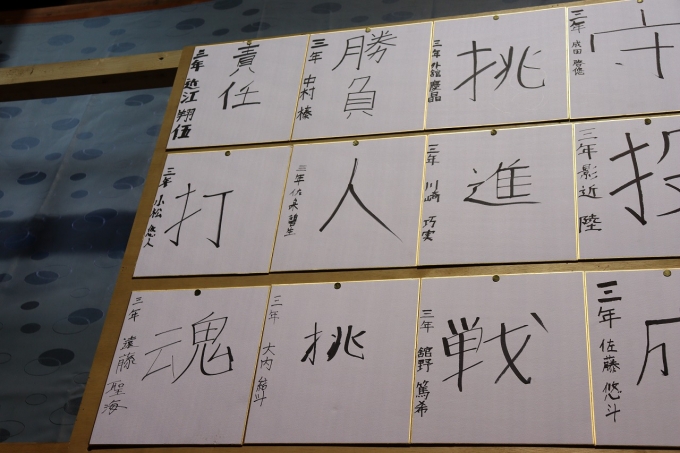 責任
三年 近江 翔伍
勝負
三年 中村 榛
挑
三年 外舘 慶晶
守
三年 成田 啓悠
打
三年 小松 悠人
人
三年 佐央 碧生
進
三年 川﨑 巧実
投
三年 影近 陸
魂
三年 遠藤 聖海
挑
三年 大内 結斗
戦
三年 舘野 篤希
三年 佐藤 悠斗